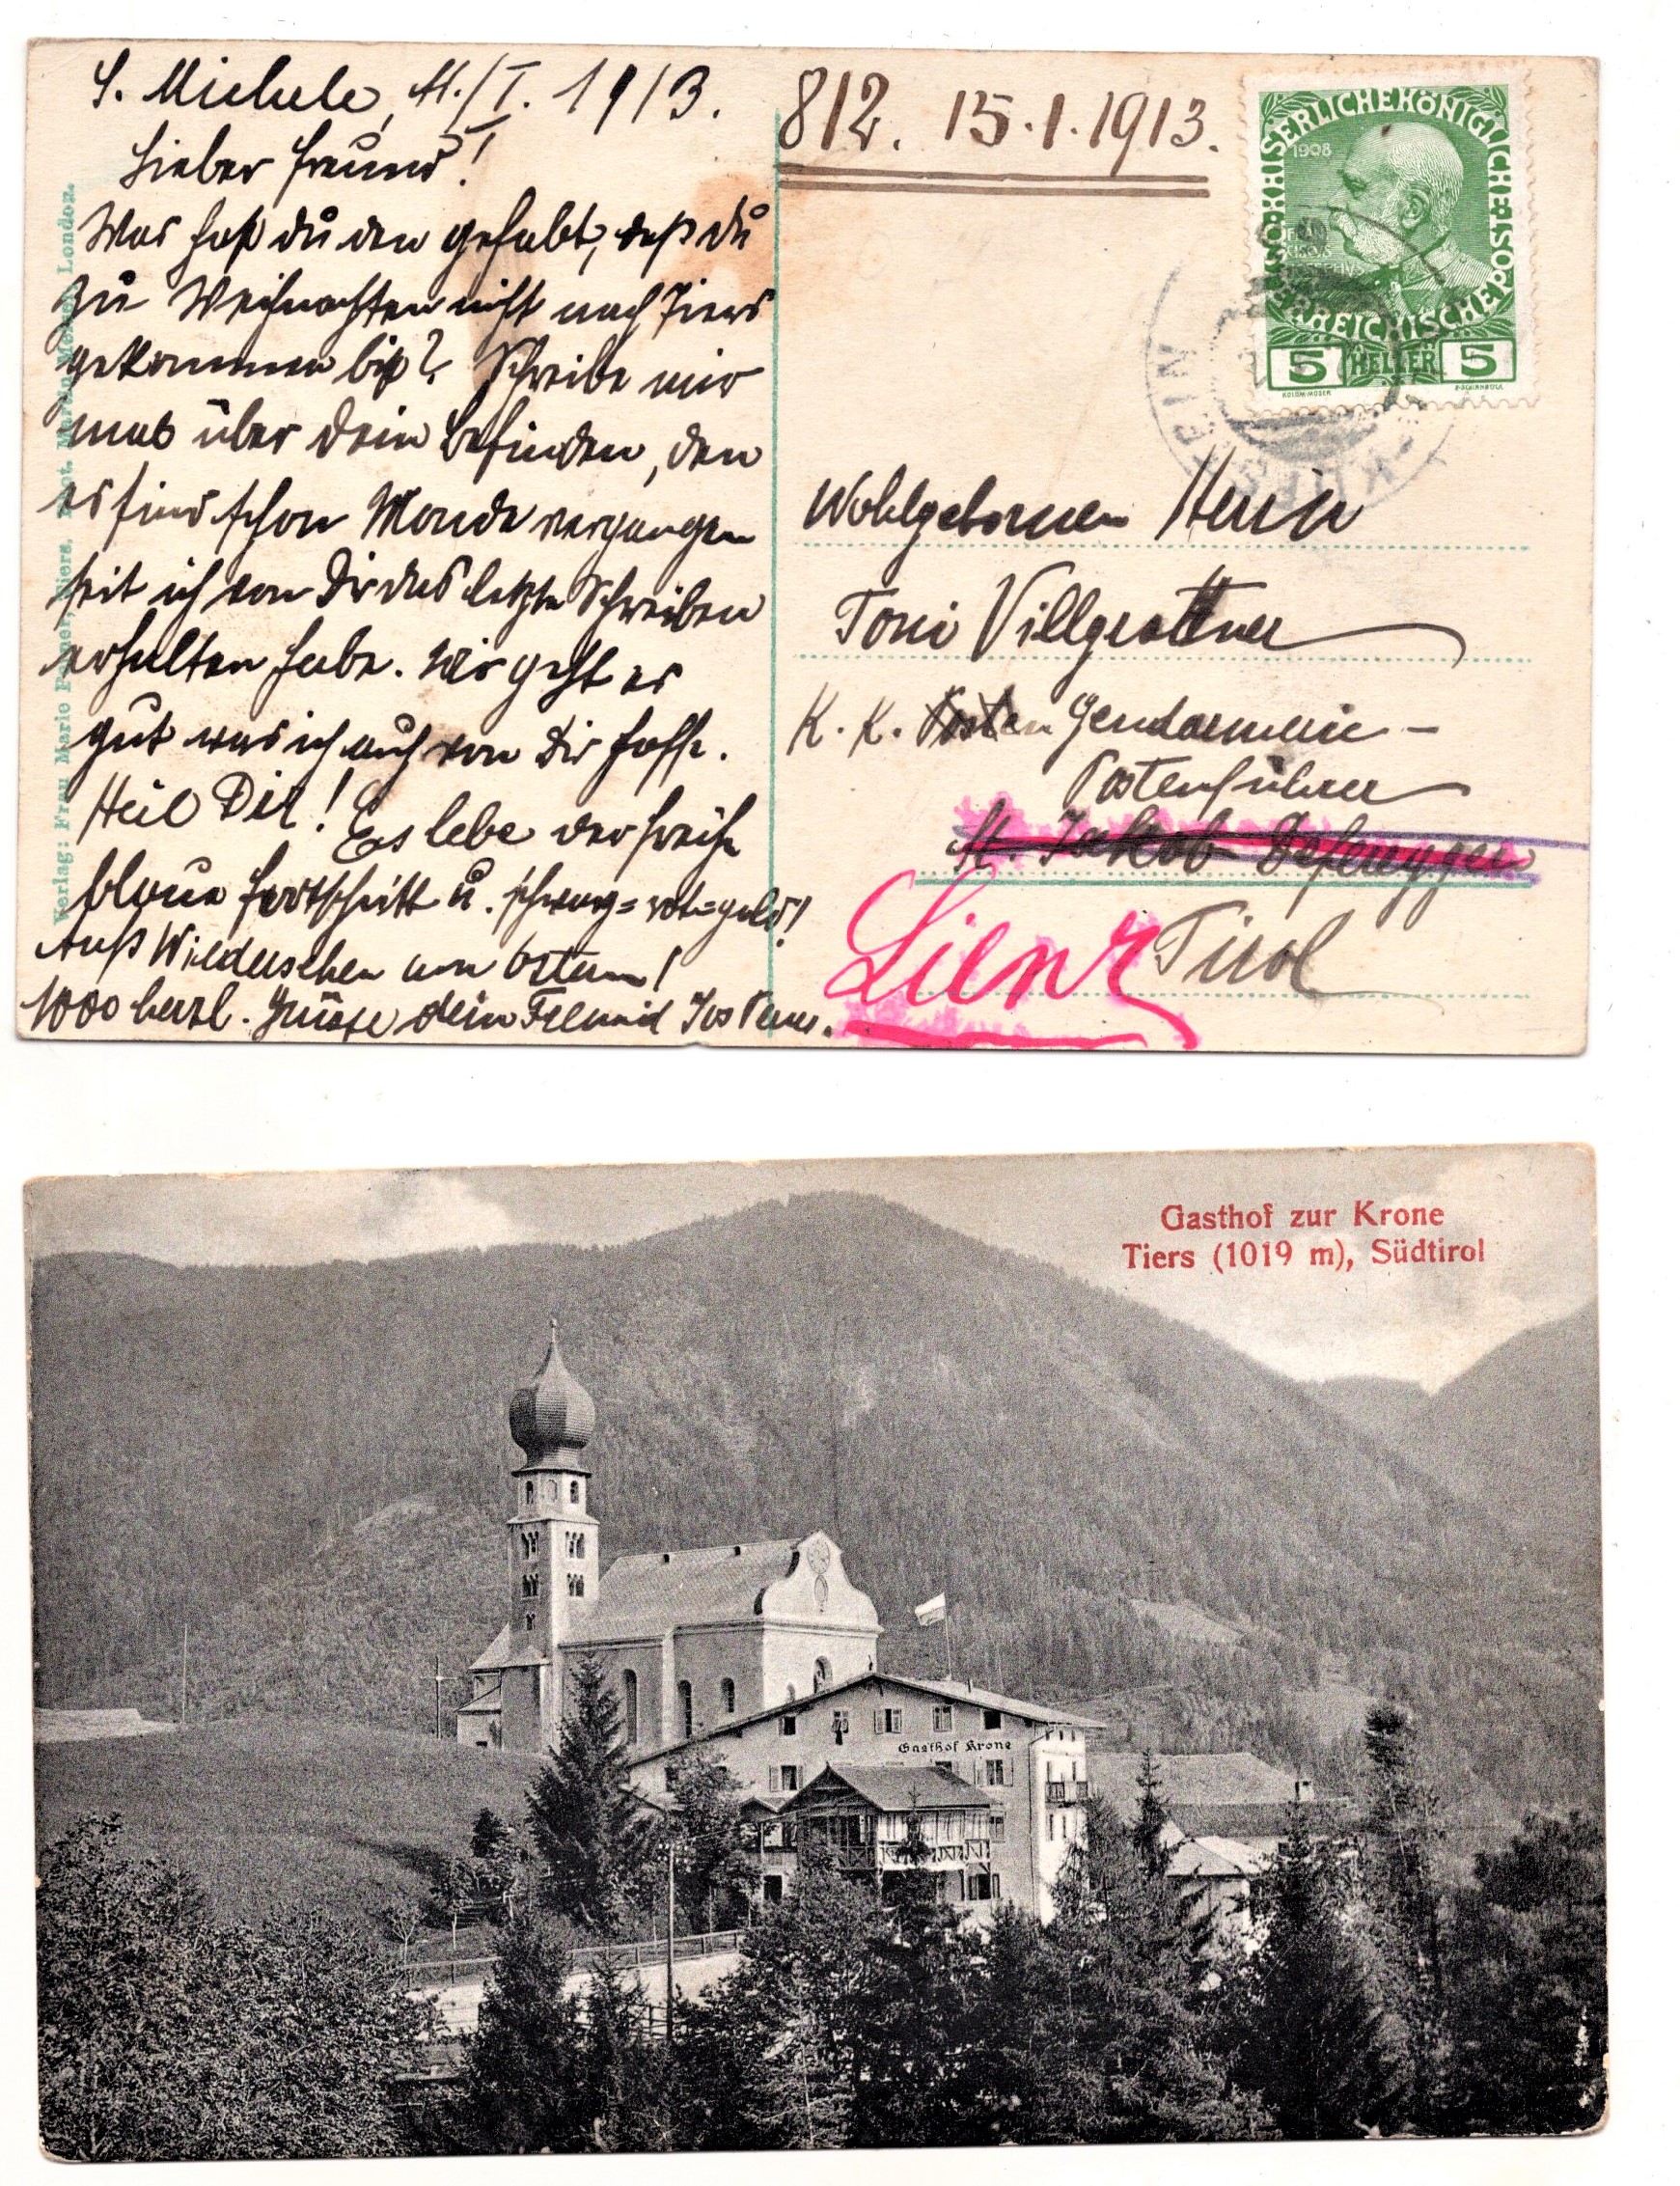 S. Michele, 11./I. 1913.
Lieber Freund!
Was hast du den gehabt, daß du
zu Weihnachten nicht nach Tiers
gekommen bist? Schreibe mir
was über dein Befinden, den
es sind schon Monde vergangen
seit ich von Dir das letzte Schreiben
erhalten habe. Mir geht es
gut was ich auch von Dir hoffe.
Heil Dir! Es lebe der freihe
blaue Fortschritt u. schwarz=rot=gold!
Auf Wiedersehen um Ostern!
1000 herzl. Grüsse dein Freund Jos
Verlag: Frau Marie Tiers. London.
812. 15.1.1913.
KAISERLICHE KÖNIGLICHE ÖSTERREICHISCHE POST
1908
5 HELLER 5
Wohlgebornen Herrn
Toni Villgrattner
K. K. Posten Gendarmerie-
Postenführer
St. Jakob Defereggen
Lienz Tirol
Gasthof zur Krone
Tiers (1019 m), Südtirol
Gasthof Krone